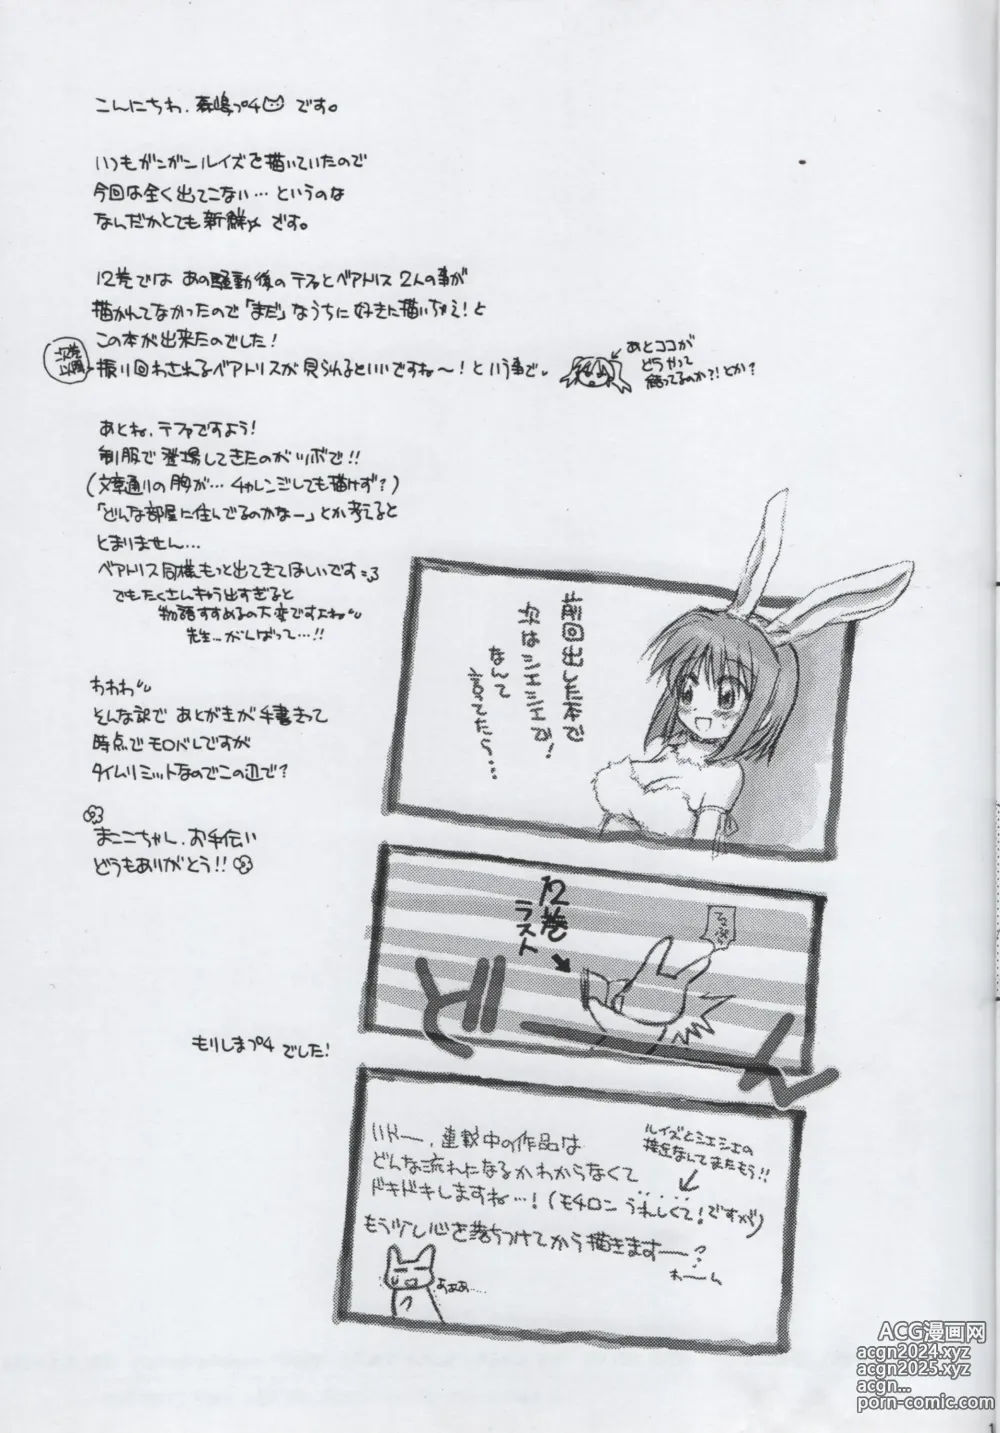 こんにちわ、森嶋プチです。
いつもガンガンルイズを描いていたので
今回は全く出てこない…というのな
なんだかとても新鮮☆です。
12巻では あの騒動後のテファとベアトリス 2人の事が
描かれてなかったので「まだ」なうちに好きに描いちゃえ!と
この本が出来たのでした!
次巻
以降
振り回わされるベアトリスが見られるといいですね〜!という事で。
あとココが
どうやって
結ってるのか?!とか?
あとね、テファですよう!
制服で登場してきたのがツボで!!
(文章通りの胸が…チャレンジしても描けず?)
「どんな部屋に住んでるのかなー」とか考えると
とまりません…
ベアトリス同様もっと出てきてほしいです
でもたくさんキャラ出すぎると
物語すすめるの大変ですよね
先生…がんばって…!!
わわわ
そんな訳で あとがきが手書きって
時点でモロバレですが
タイムリミットなのでこの辺で?
まここちゃん、お手伝い
どうもありがとう!!
もりしまプチでした!
前回出した本で
次はシエシエで!
なんて
言ってたら…
12巻
ラスト
ど〃ーん
いやー、連載中の作品は
どんな流れになるかわからなくて
ドキドキしますね…!(モチロン うれしくて!ですが)
ルイズとシエシエの
接近なんてまたもう!!
もう少し心を落ちつけてから描きますー?
わーん
あああ…
ACG漫画网
acgn2024.xyz
acgn2025.xyz
acgn...
porn-comic.com
1